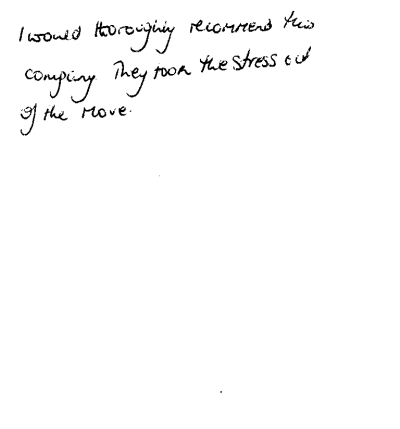 I would thoroughly recommend this
company. They took the stress out
of the move.